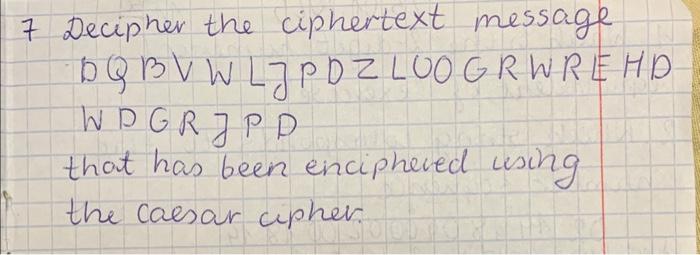 7 Decipher the ciphertext message
DQBVWLJPDZLOOGRWREHD
WDGRJPD
that has been enciphered using
the caesar cipher.